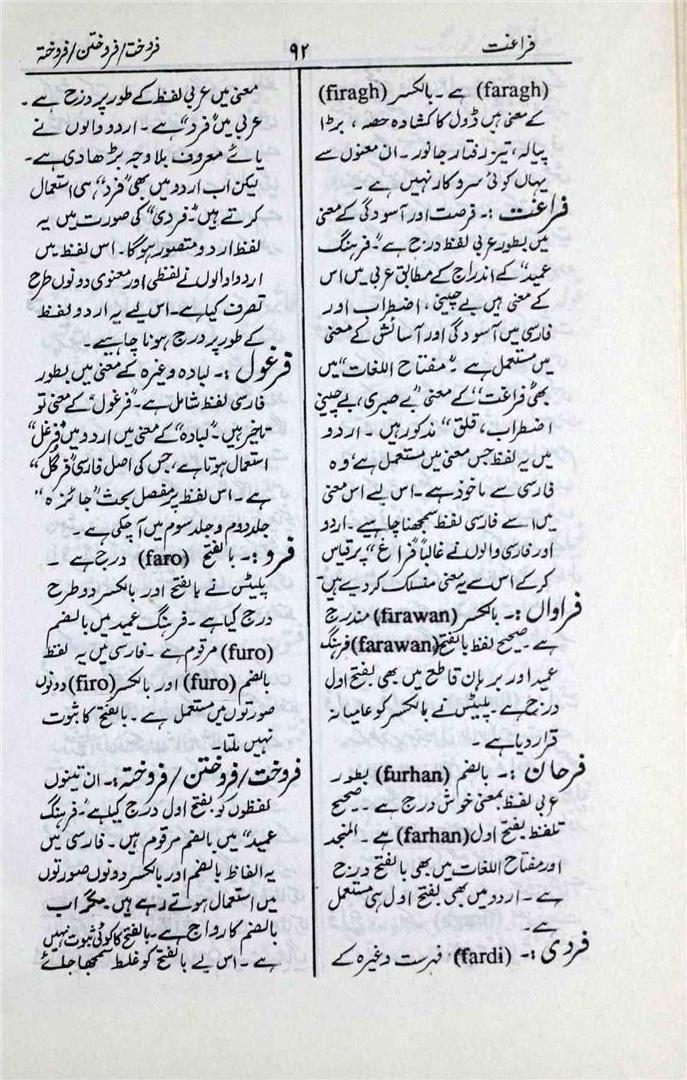 فراغت ۹۲ فروخت/فروختن/فروختہ
(faragh) ہے۔ بالکسر (firagh)
کے معنی ہیں ڈول کا کشادہ حصہ، بڑا
پیالہ، تیز رفتار جانور۔ ان معنوں سے
یہاں کوئی سروکار نہیں ہے۔
فراغت:۔ فرصت اور آسودگی کے معنی
میں بطور عربی لفظ درج ہے۔ "فرہنگ
عمید" کے اندراج کے مطابق عربی میں اس
کے معنی ہیں بے چینی، اضطراب اور
فارسی میں آسودگی اور آسائش کے معنی
میں مستعمل ہے۔ "مفتاح اللغات" میں
بھی "فراغت" کے معنی "بے صبری، بے چینی
اضطراب، قلق" مذکور ہیں۔ اردو
میں یہ لفظ جس معنی میں مستعمل ہے وہ
فارسی سے ماخوذ ہے۔ اس لیے اس معنی
میں اسے فارسی لفظ سمجھنا چاہیے۔ اردو
اور فارسی والوں نے غالباً "فراغ" پر قیاس
کر کے اس سے یہ معنی منسلک کر دیے ہیں۔
فراواں:۔ بالکسر (firawan) مندرج
ہے۔ صحیح لفظ بالفتح (farawan) فرہنگ
عمید اور برہان قاطع میں بھی بفتح اول
درج ہے۔ پلیٹس نے بالکسر کو عامیانہ
قرار دیا ہے۔
فرحان:۔ بالضم (furhan) بطور
عربی لفظ بمعنی خوش درج ہے۔ صحیح
تلفظ بفتح اول (farhan) ہے۔ المنجد
اور مفتاح اللغات میں بھی بالفتح درج
ہے۔ اردو میں بھی بفتح اول ہی مستعمل
ہے۔
فردی:۔ (fardi) فہرست وغیرہ کے
معنی میں عربی لفظ کے طور پر درج ہے۔
عربی میں "فرد" ہے۔ اردو والوں نے
یائے معروف بلا وجہ بڑھا دی ہے۔
لیکن اب اردو میں بھی "فرد" ہی استعمال
کرتے ہیں۔ "فردی" کی صورت میں یہ
لفظ اردو متصور ہوگا۔ اس لفظ میں
اردو والوں نے لفظی اور معنوی دونوں طرح
تصرف کیا ہے۔ اس لیے یہ اردو لفظ
کے طور پر درج ہونا چاہیے۔
فرغول:۔ لبادہ وغیرہ کے معنی میں بطور
فارسی لفظ شامل ہے۔ "فرغول" کے معنی تو
تاخیر ہیں۔ "لبادہ" کے معنی میں اردو میں "فرغل"
استعمال ہوتا ہے، جس کی اصل فارسی "فرگل"
ہے۔ اس لفظ پر مفصل بحث "جائزہ"
جلد دوم و جلد سوم میں آ چکی ہے۔
فرو:۔ بالفتح (faro) درج ہے۔
پلیٹس نے بالفتح اور بالکسر دو طرح
درج کیا ہے۔ فرہنگ عمید میں بالضم
(furo) مرقوم ہے۔ فارسی میں یہ لفظ
بالضم (furo) اور بالکسر (firo) دونوں
صورتوں میں مستعمل ہے۔ بالفتح کا ثبوت
نہیں ملتا۔
فروخت/فروختن/فروختہ:۔ ان تینوں
لفظوں کو بفتح اول درج کیا ہے۔ "فرہنگ
عمید" میں بالضم مرقوم ہیں۔ فارسی میں
یہ الفاظ بالضم اور بالکسر دونوں صورتوں
میں استعمال ہوتے رہے ہیں مگر اب
بالضم کا رواج ہے۔ بالفتح کا کوئی ثبوت نہیں
ہے۔ اس لیے بالفتح کو غلط سمجھا جائے